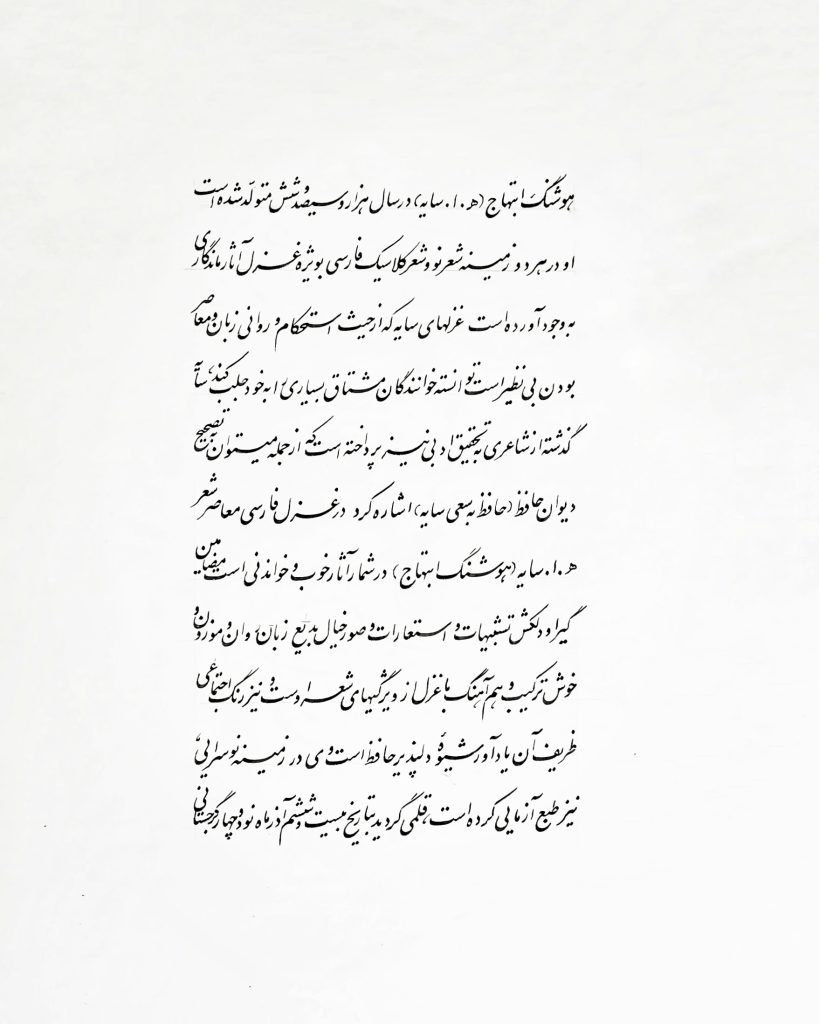 هوشنگ ابتهاج (ه.ا.سایه) در سال هزار و سیصد و شش متولّد شده است
او در هر دو زمینه شعر نو و شعر کلاسیک فارسی بویژه غزل آثار ماندگاری
به وجود آورده است غزلهای سایه که از حیث استحکام و روانی زبان و معاصر
بودن بی نظیر است توانسته خوانندگان مشتاق بسیاری را به خود جلب کند، سایه
گذشته از شاعری به تحقیق ادبی نیز پرداخته است که از جمله میتوان به تصحیح
دیوان حافظ (حافظ به سعی سایه) اشاره کرد در غزل فارسی معاصر شعر
ه.ا.سایه (هوشنگ ابتهاج) در شمار آثار خوب و خواندنی است مضامین
گیرا و دلکش تشبیهات و استعارات و صور خیال بدیع زبان روان و موزون و
خوش ترکیب و هم آهنگ با غزل از ویژگیهای شعر اوست و نیز رنگ اجتماعی
ظریف آن یادآور شیوهٔ دلپذیر حافظ است وی در زمینه نوسرایی
نیز طبع آزمایی کرده است، قلمی گردید بتاریخ بیست و ششم آذر ماه نود و چهار گرجستانی